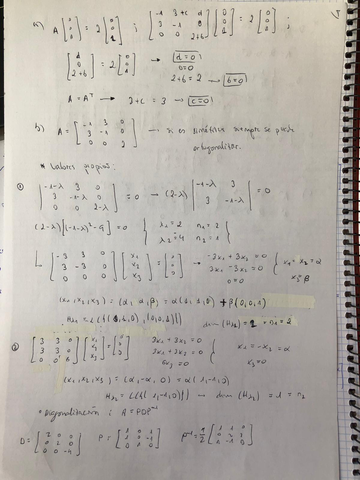 a) A [0 0 1] = 2 [0 0 1] ; [-1 3+c d; 3 -1 0; 0 0 2+b] [0 0 1] = 2 [0 0 1] ;
[d 0 2+b] = 2 [0 0 1] → d=0
0=0
2+b=2 → b=0
A = Aᵀ → 3+c = 3 → c=0
b) A = [-1 3 0; 3 -1 0; 0 0 2] → si es simétrica siempre se puede
* Valores propios:
① |-1-λ 3 0; 3 -1-λ 0; 0 0 2-λ| = 0 → (2-λ) |-1-λ 3; 3 -1-λ| = 0
(2-λ)[(-1-λ)²-9] = 0 { λ₁=2 n₁=2
[-3 3 0; 3 -3 0; 0 0 0] [x₁ x₂ x₃] = [0 0 0] -3x₁+3x₂=0
3x₁-3x₂=0
0=0
x₁=x₂=α
x₃=β
(x₁,x₂,x₃) = (α,α,β) = α(1,1,0) + β(0,0,1)
② [3 3 0; 3 3 0; 0 0 6] [x₁ x₂ x₃] = [0 0 0] 3x₁+3x₂=0
3x₁+3x₂=0
6x₃=0
x₁=-x₂=α
x₃=0
(x₁,x₂,x₃) = (α,-α,0) = α(1,-1,0)
Hλ₂ = L({(1,-1,0)}) → dim(Hλ₂) = 1 = n₂
* Diagonalización: A = PDP⁻¹
D = [2 0 0; 0 2 0; 0 0 -4] P = [1 0 1; 1 0 -1; 0 1 0] P⁻¹ = 1/2